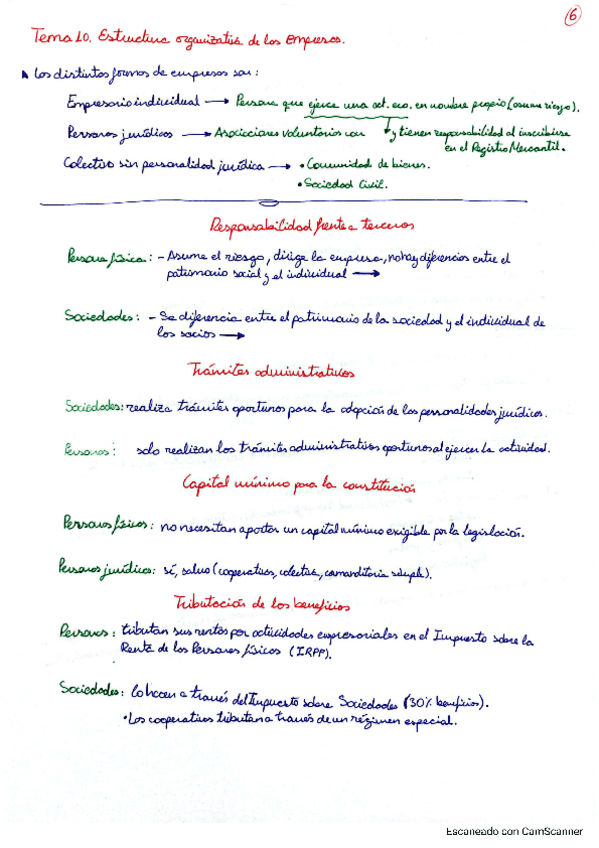 6
Tema 10. Estructura organizativa de las Empresas.
Los distintas formas de empresas son:
Empresario individual → Persona que ejerce una act. eco. en nombre propio (asume riesgo).
Personas jurídicas → Asociaciones voluntarias con y tienen responsabilidad al inscribirse
en el Registro Mercantil.
Colectivo sin personalidad jurídica → • Comunidad de bienes.
• Sociedad Civil.
Responsabilidad frente a terceros
Persona física: - Asume el riesgo, dirige la empresa, no hay diferencias entre el
patrimonio social y el individual →
Sociedades: - Se diferencia entre el patrimonio de la sociedad y el individual de
los socios →
Trámites administrativos
Sociedades: realiza trámites oportunos para la adopción de las personalidades jurídicas.
Personas: solo realizan los trámites administrativos oportunos al ejercer la actividad.
Capital mínimo para la constitución
Personas físicas: no necesitan aportar un capital mínimo exigible por la legislación.
Personas jurídicas: sí, salvo (cooperativas, colectiva, comanditaria simple).
Tributación de los beneficios
Personas: tributan sus rentas por actividades empresariales en el Impuesto sobre la
Renta de las Personas físicas (IRPP).
Sociedades: lo hacen a través del Impuesto sobre Sociedades (30% beneficios).
• Las cooperativas tributan a través de un régimen especial.
Escaneado con CamScanner